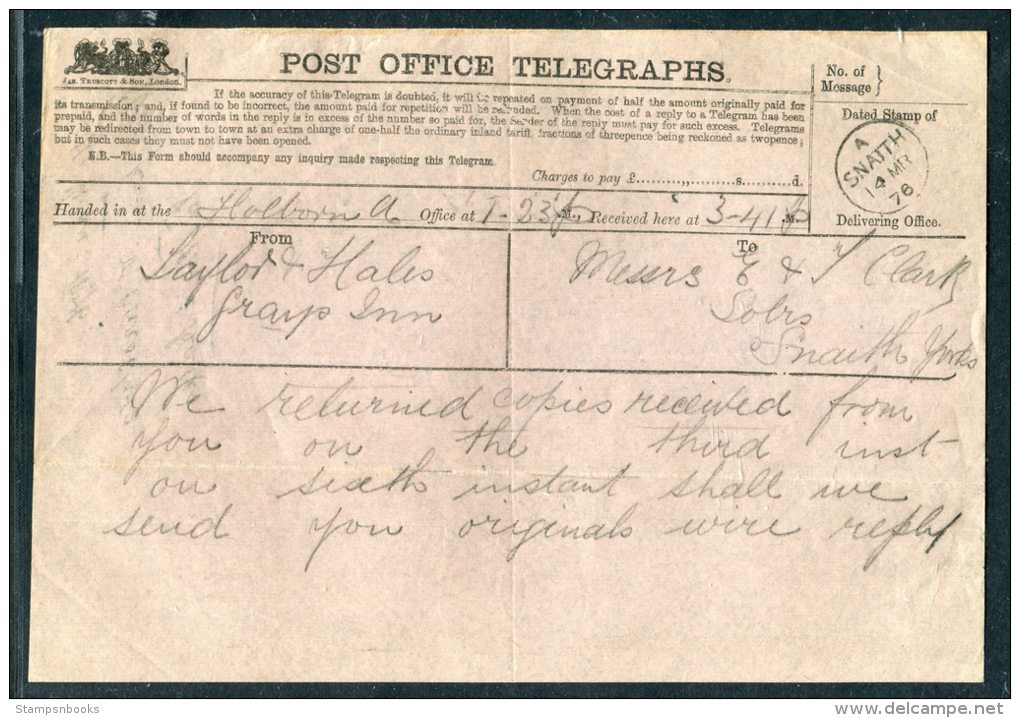 POST OFFICE TELEGRAPHS.
JAS. TRUSCOTT & SON, London.
If the accuracy of this Telegram is doubted, it will be repeated on payment of half the amount originally paid for
its transmission; and, if found to be incorrect, the amount paid for repetition will be refunded. When the cost of a reply to a Telegram has been
prepaid, and the number of words in the reply is in excess of the number so paid for, the Sender of the reply must pay for such excess. Telegrams
may be redirected from town to town at an extra charge of one-half the ordinary inland tariff, fractions of threepence being reckoned as twopence;
but in such cases they must not have been opened.
N.B.—This Form should accompany any inquiry made respecting this Telegram.
Charges to pay £..........,,.........s..........d.
No. of
Message }
Dated Stamp of
A
SNAITH
14 MR
76
Delivering Office.
Handed in at the Holborn Office at 1-23 P M., Received here at 3-41 P M.
From
Taylor & Hales
Grays Inn
To
Messrs E & T Clark
Solrs
Snaith Yorks
We returned copies received from
you on the third inst
on sixth instant shall we
send you originals wire reply
Stampsnbooks
www.delcampe.net